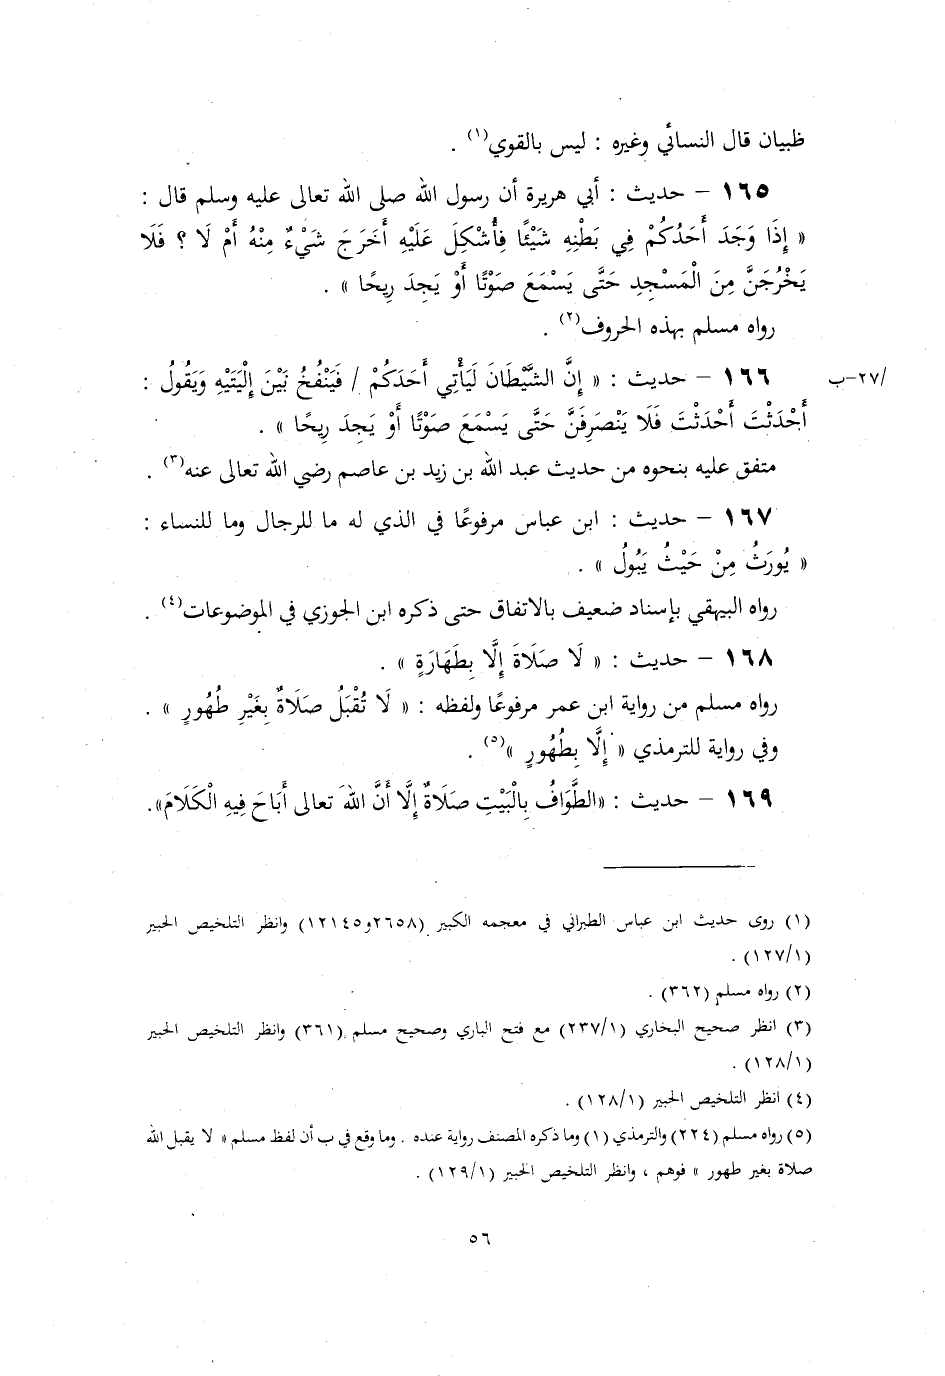 ظبيان قال النسائي وغيره : ليس بالقوي(١) .
١٦٥ – حديث : أبي هريرة أن رسول الله صلى الله تعالى عليه وسلم قال :
« إِذَا وَجَدَ أَحَدُكُمْ فِي بَطْنِهِ شَيْئًا فَأُشْكِلَ عَلَيْهِ أَخَرَجَ شَيْءٌ مِنْهُ أَمْ لَا ؟ فَلَا
يَخْرُجَنَّ مِنَ الْمَسْجِدِ حَتَّى يَسْمَعَ صَوْتًا أَوْ يَجِدَ رِيحًا » .
رواه مسلم بهذه الحروف(٢) .
١٦٦ – حديث : « إِنَّ الشَّيْطَانَ لَيَأْتِي أَحَدَكُمْ / فَيَنْفُخُ بَيْنَ إِلْيَتَيْهِ وَيَقُولُ : /٢٧-ب
أَحْدَثْتَ أَحْدَثْتَ فَلَا يَنْصَرِفَنَّ حَتَّى يَسْمَعَ صَوْتًا أَوْ يَجِدَ رِيحًا » .
متفق عليه بنحوه من حديث عبد الله بن زيد بن عاصم رضي الله تعالى عنه(٣) .
١٦٧ – حديث : ابن عباس مرفوعًا في الذي له ما للرجال وما للنساء :
« يُورَثُ مِنْ حَيْثُ يَبُولُ » .
رواه البيهقي بإسناد ضعيف بالاتفاق حتى ذكره ابن الجوزي في الموضوعات(٤) .
١٦٨ – حديث : « لَا صَلَاةَ إِلَّا بِطَهَارَةٍ » .
رواه مسلم من رواية ابن عمر مرفوعًا ولفظه : « لَا تُقْبَلُ صَلَاةٌ بِغَيْرِ طُهُورٍ » .
وفي رواية للترمذي « إِلَّا بِطُهُورٍ »(٥) .
١٦٩ – حديث : «الطَّوَافُ بِالْبَيْتِ صَلَاةٌ إِلَّا أَنَّ اللهَ تعالى أَبَاحَ فِيهِ الْكَلَامَ».
(١) روى حديث ابن عباس الطبراني في معجمه الكبير (٢٦٥٨و١٢١٤٥) وانظر التلخيص الحبير
(١٢٧/١) .
(٢) رواه مسلم (٣٦٢) .
(٣) انظر صحيح البخاري (٢٣٧/١) مع فتح الباري وصحيح مسلم (٣٦١) وانظر التلخيص الحبير
(١٢٨/١) .
(٤) انظر التلخيص الحبير (١٢٨/١) .
(٥) رواه مسلم (٢٢٤) والترمذي (١) وما ذكره المصنف رواية عنده . وما وقع في ب أن لفظ مسلم « لا يقبل الله
صلاة بغير طهور » فوهم ، وانظر التلخيص الحبير (١٢٩/١) .
٥٦